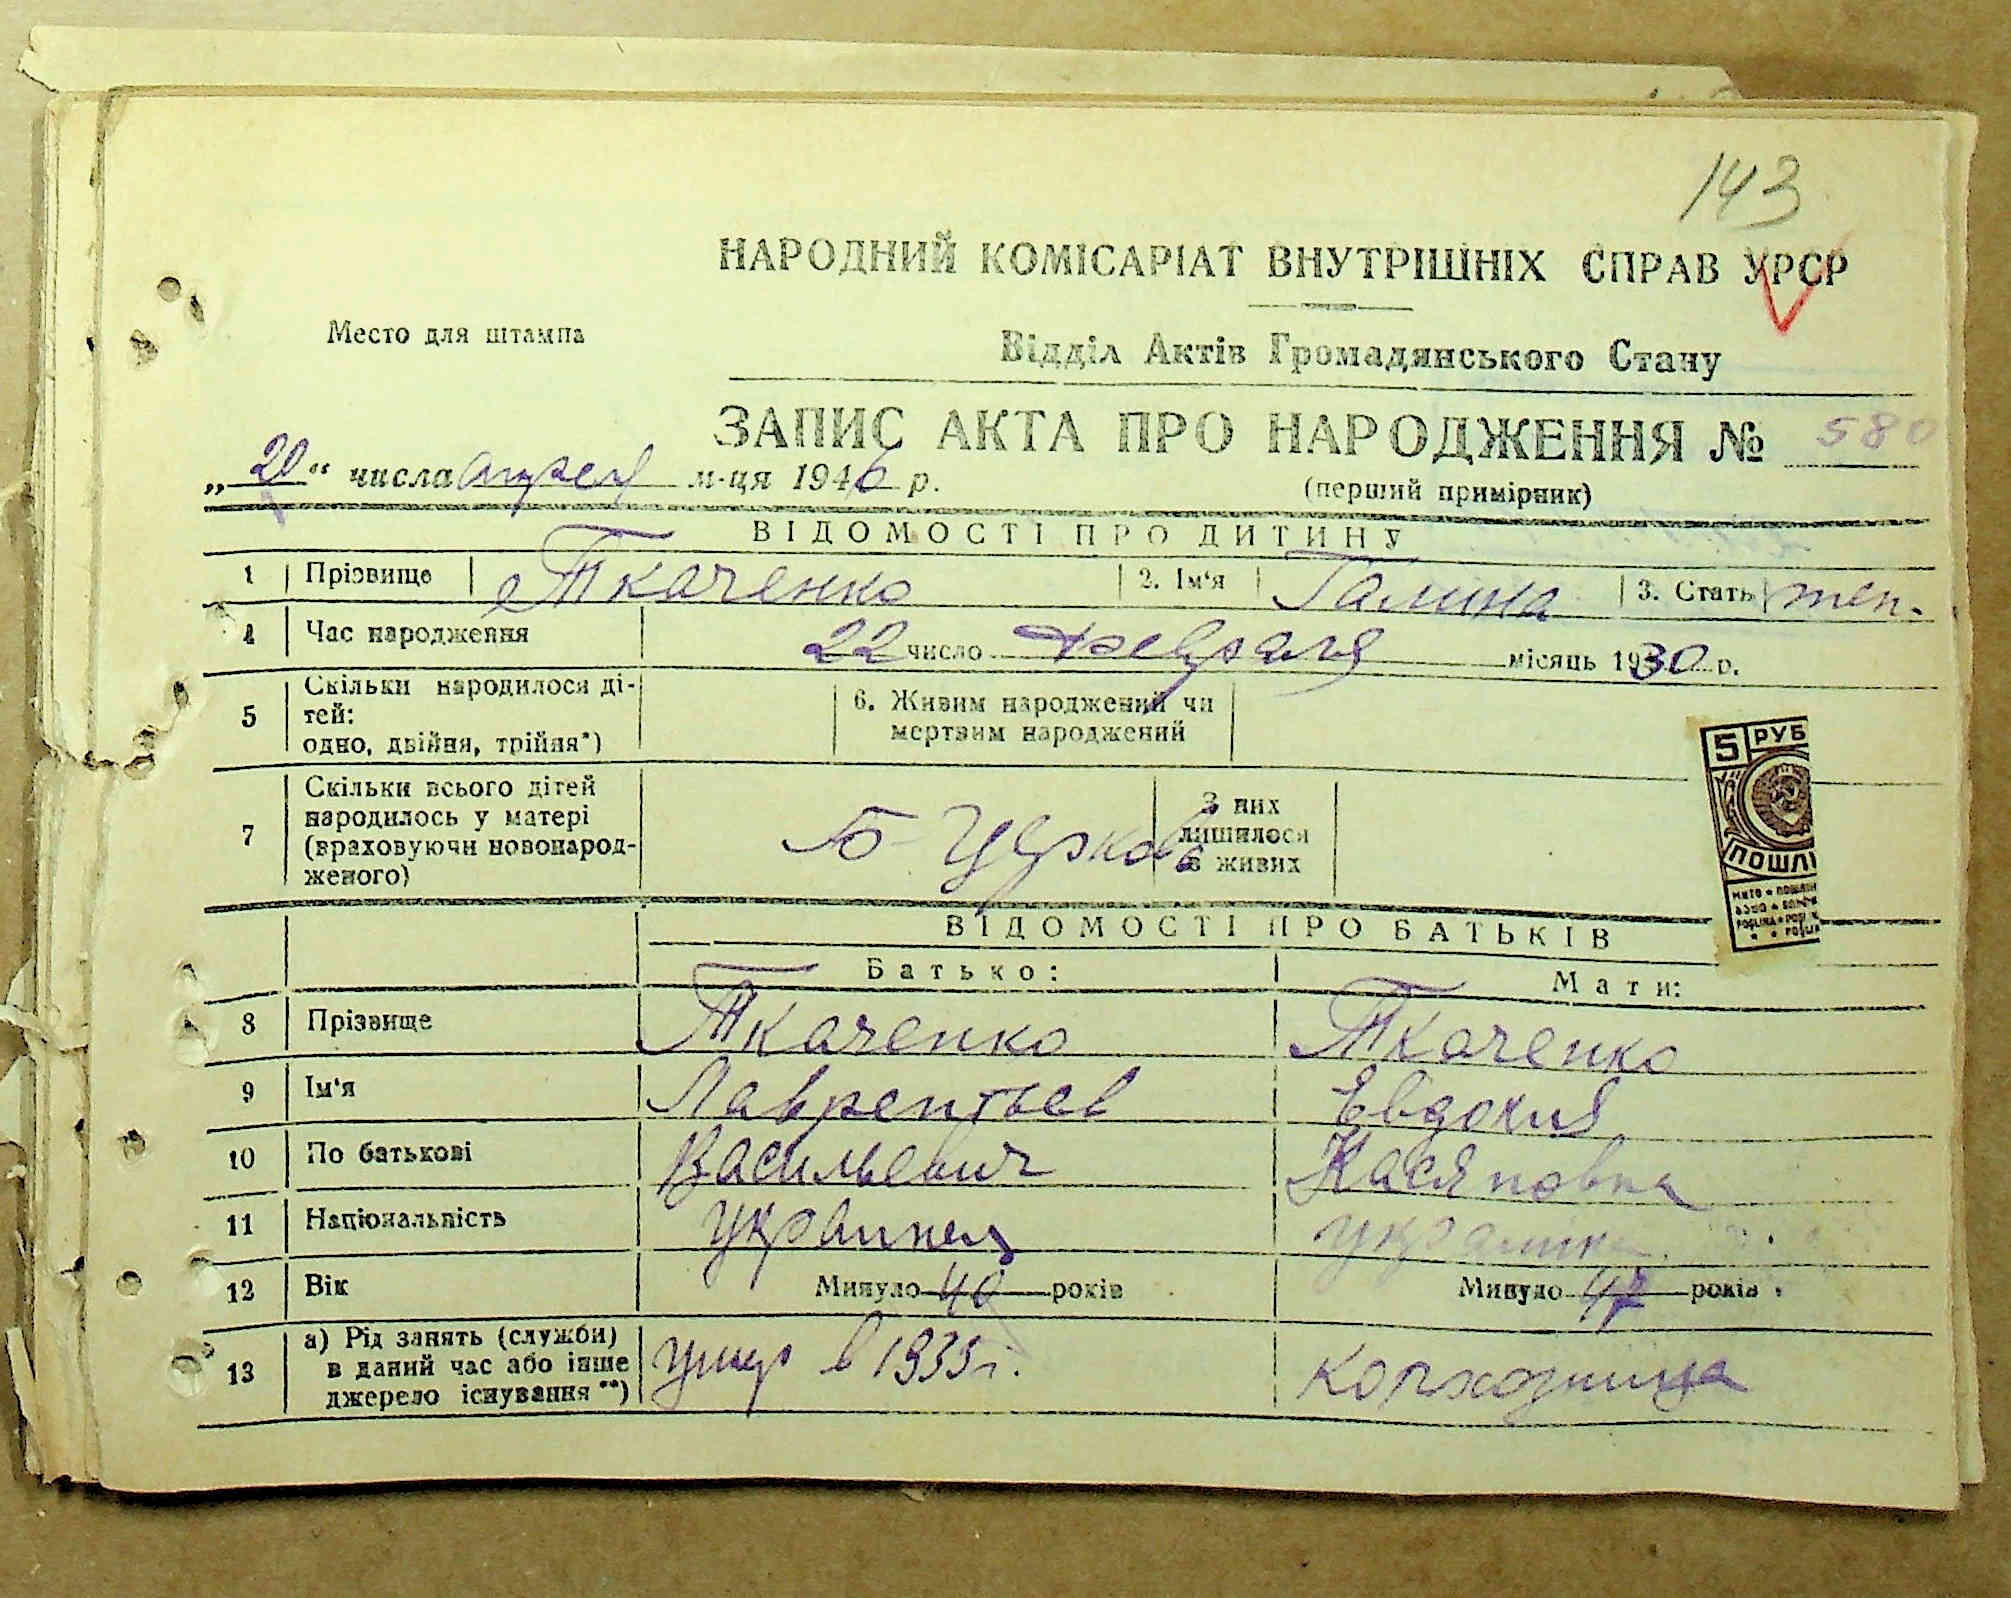 143
НАРОДНИЙ КОМІСАРІАТ ВНУТРІШНІХ СПРАВ УРСР
Место для штампа
Відділ Актів Громадянського Стану
ЗАПИС АКТА ПРО НАРОДЖЕННЯ № 580
„20" числа апреля м-ця 1946 р.
(перший примірник)
ВІДОМОСТІ ПРО ДИТИНУ
1 Прізвище Ткаченко 2. Ім'я Галина 3. Стать жен.
4 Час народження 22 число февраля місяць 1930 р.
5 Скільки народилося ді-
тей:
одно, двійня, трійня*)
6. Живим народжений чи
мертвим народжений
7 Скільки всього дітей
народилось у матері
(враховуючи новонарод-
женого)
Б-Церковь
З них
лишилося
в живих
5 РУБ
ПОШЛ
ВІДОМОСТІ ПРО БАТЬКІВ
Батько: Мати:
8 Прізвище Ткаченко Ткаченко
9 Ім'я Лаврентьев Евдокия
10 По батькові Васильевич Касяновна
11 Національність украинец украинка
12 Вік Минуло 40 років Минуло 47 років
13 а) Рід занять (служби)
в даний час або інше
джерело існування**)
умер в 1933 г. колхозница